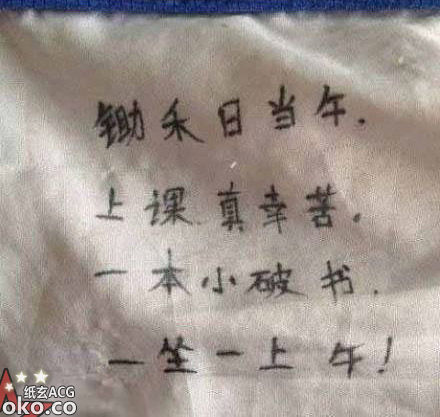 锄禾日当午.
上课真幸苦。
一本小破书.
一坐一上午!
纸玄ACG
oko.co